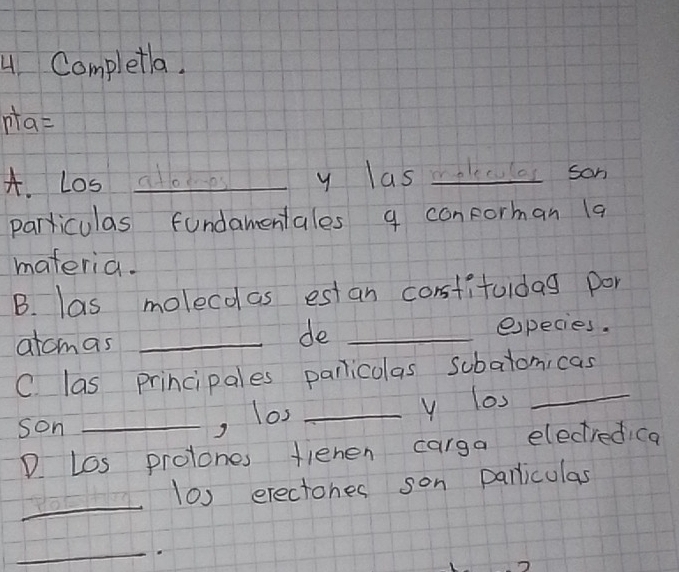 4. Completla.
pta=
A. Los atomos y las moleculas son
particulas fundamentales q conforman la
materia.
B. las molecolas estan constituidas por
atomas ______ de ______ especies.
C. las principales particolas subatomicas
son ______, los ______ y los ______
D. Los protones tienen carga electredica
______ los erectones son particulas
______.